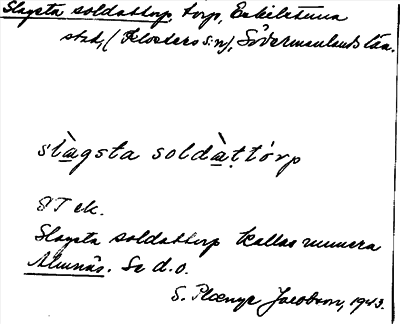 Slagsta soldattorp, torp, Eskilstuna
stad, (Klosters sn), Södermanlands län.
slàgsta soldàt̩tórp
Slagsta soldattorp kallas numera
Almnäs. Se d.o.
S. Plœnge Jacobson, 1943.